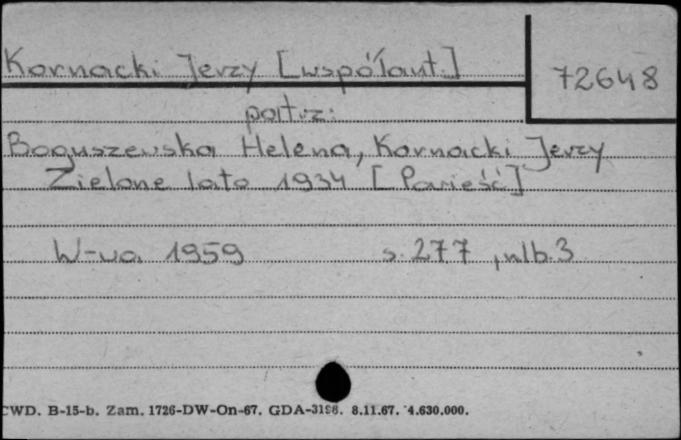 Kornacki Jerzy [współaut.]
72648
patrz:
Boguszewska Helena, Kornacki Jerzy
Zielone lato 1934 [Powieść]
W-wa 1959 s. 277, nlb. 3
CWD. B-15-b. Zam. 1726-DW-On-67. GDA-3198. 8.11.67. 4.630.000.